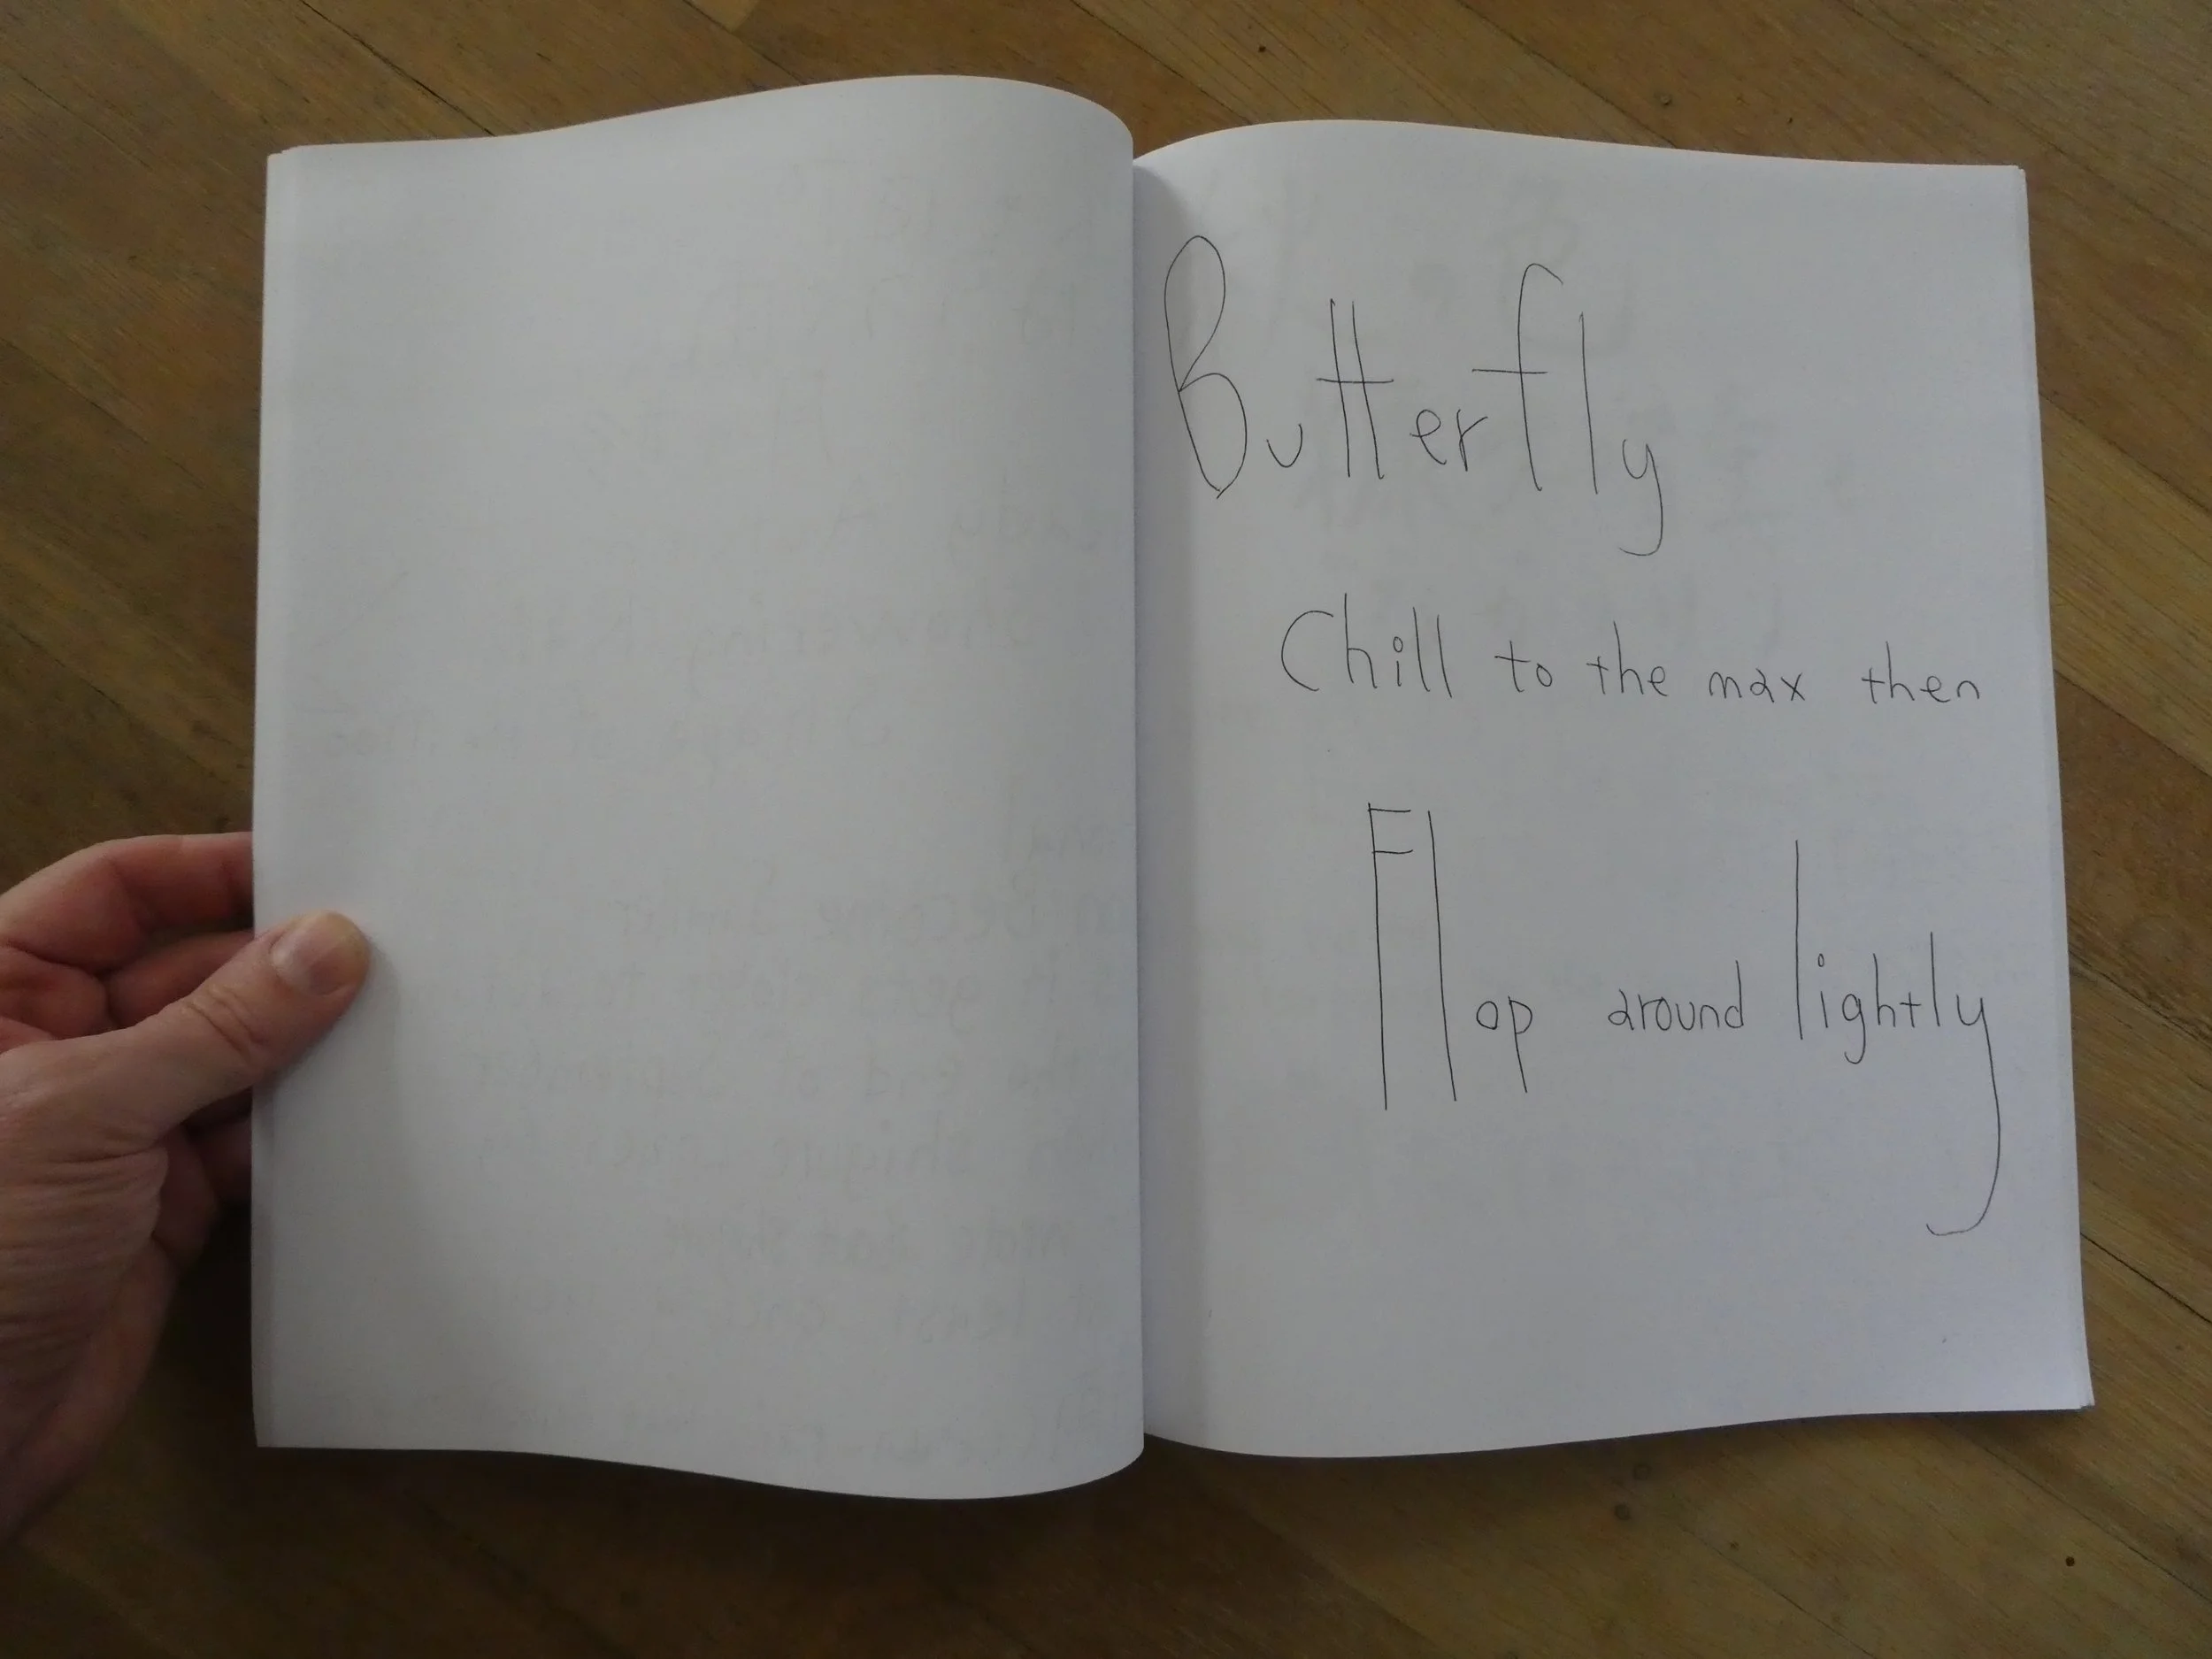 Butterfly
Chill to the max then
Flop around lightly